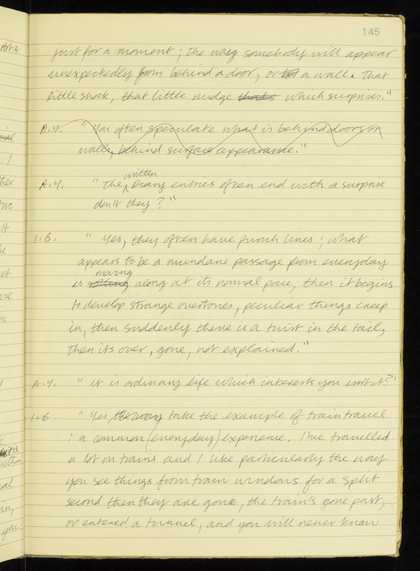 145
just for a moment; the way somebody will appear
unexpectedly from behind a door, or a wall. That
little shock, that little nudge thats which surprises."
A.Y. "You often speculate what is behind doors or
walls, behind surface appearance."
written
A.Y. "The diary entries often end with a surprise
don't they?"
L.G. "Yes, they often have punch lines; what
appears to be a mundane passage from everyday
moving
is along at its normal pace, then it begins
to develop strange overtones, peculiar things creep
in, then suddenly there is a twist in the tail,
then its over, gone, not explained."
A.Y. "It is ordinary life which interests you isn't it?"
L.G. "Yes, take the example of train travel
: a common (everyday) experience. I've travelled
a lot on trains and I like particularly the way
you see things from train windows for a split
second then they are gone, the train's gone past,
or entered a tunnel, and you will never know